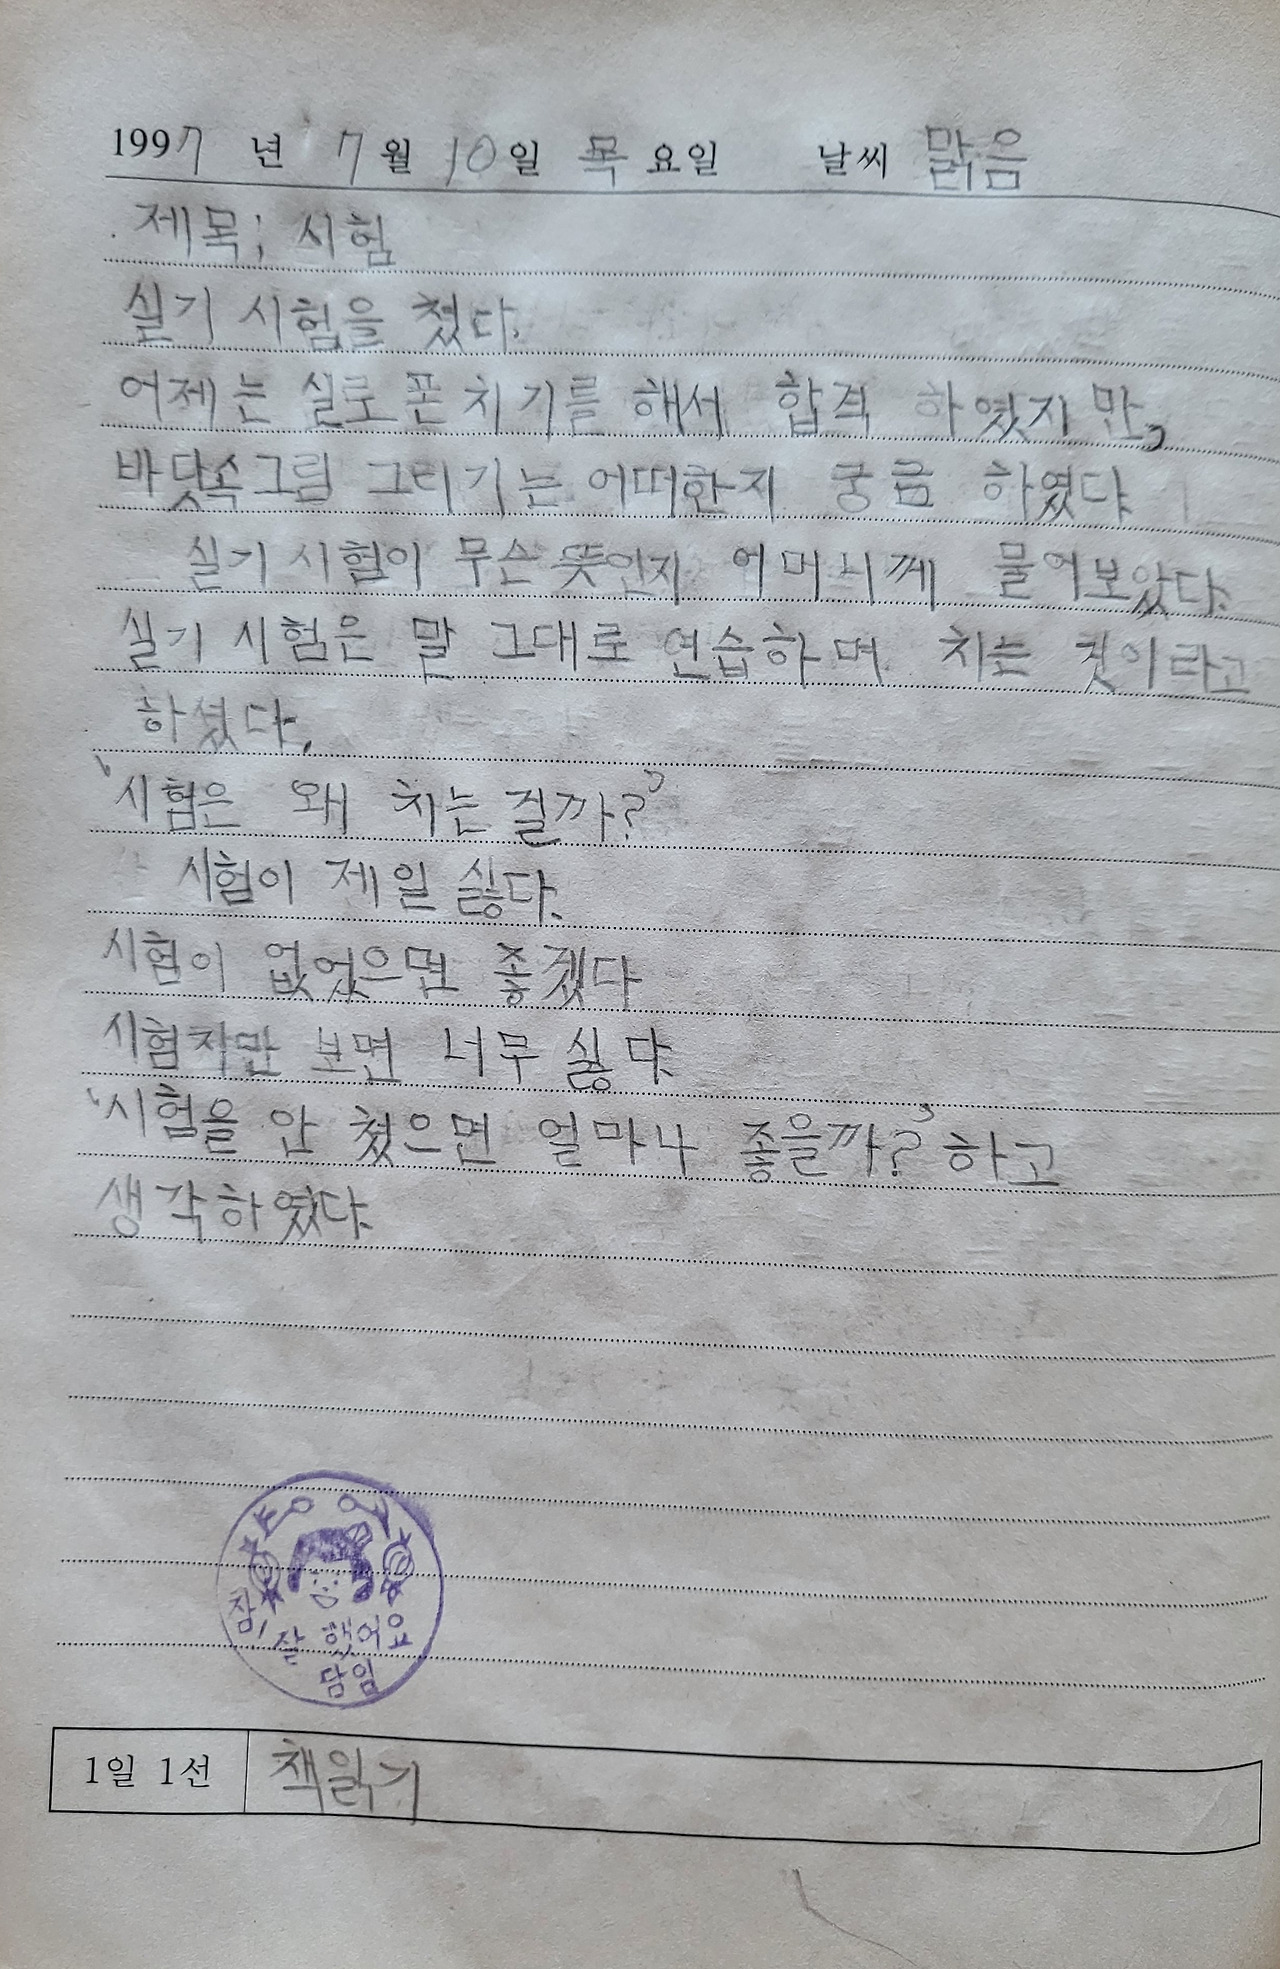 1997 년 7월 10일 목요일 날씨 맑음
제목; 시험
실기 시험을 쳤다.
어제는 실로폰 치기를 해서 합격 하였지만,
바닷속그림 그리기는 어떠한지 궁금 하였다
실기 시험이 무슨 뜻인지 어머니께 물어보았다.
실기 시험은 말 그대로 연습하며 치는 것이라고
하셨다.
'시험은 왜 치는 걸까?'
시험이 제일 싫다.
시험이 없었으면 좋겠다
시험지만 보면 너무 싫다.
'시험을 안 쳤으면 얼마나 좋을까?' 하고
생각하였다.
참! 잘 했어요
담임
1일 1선 책읽기